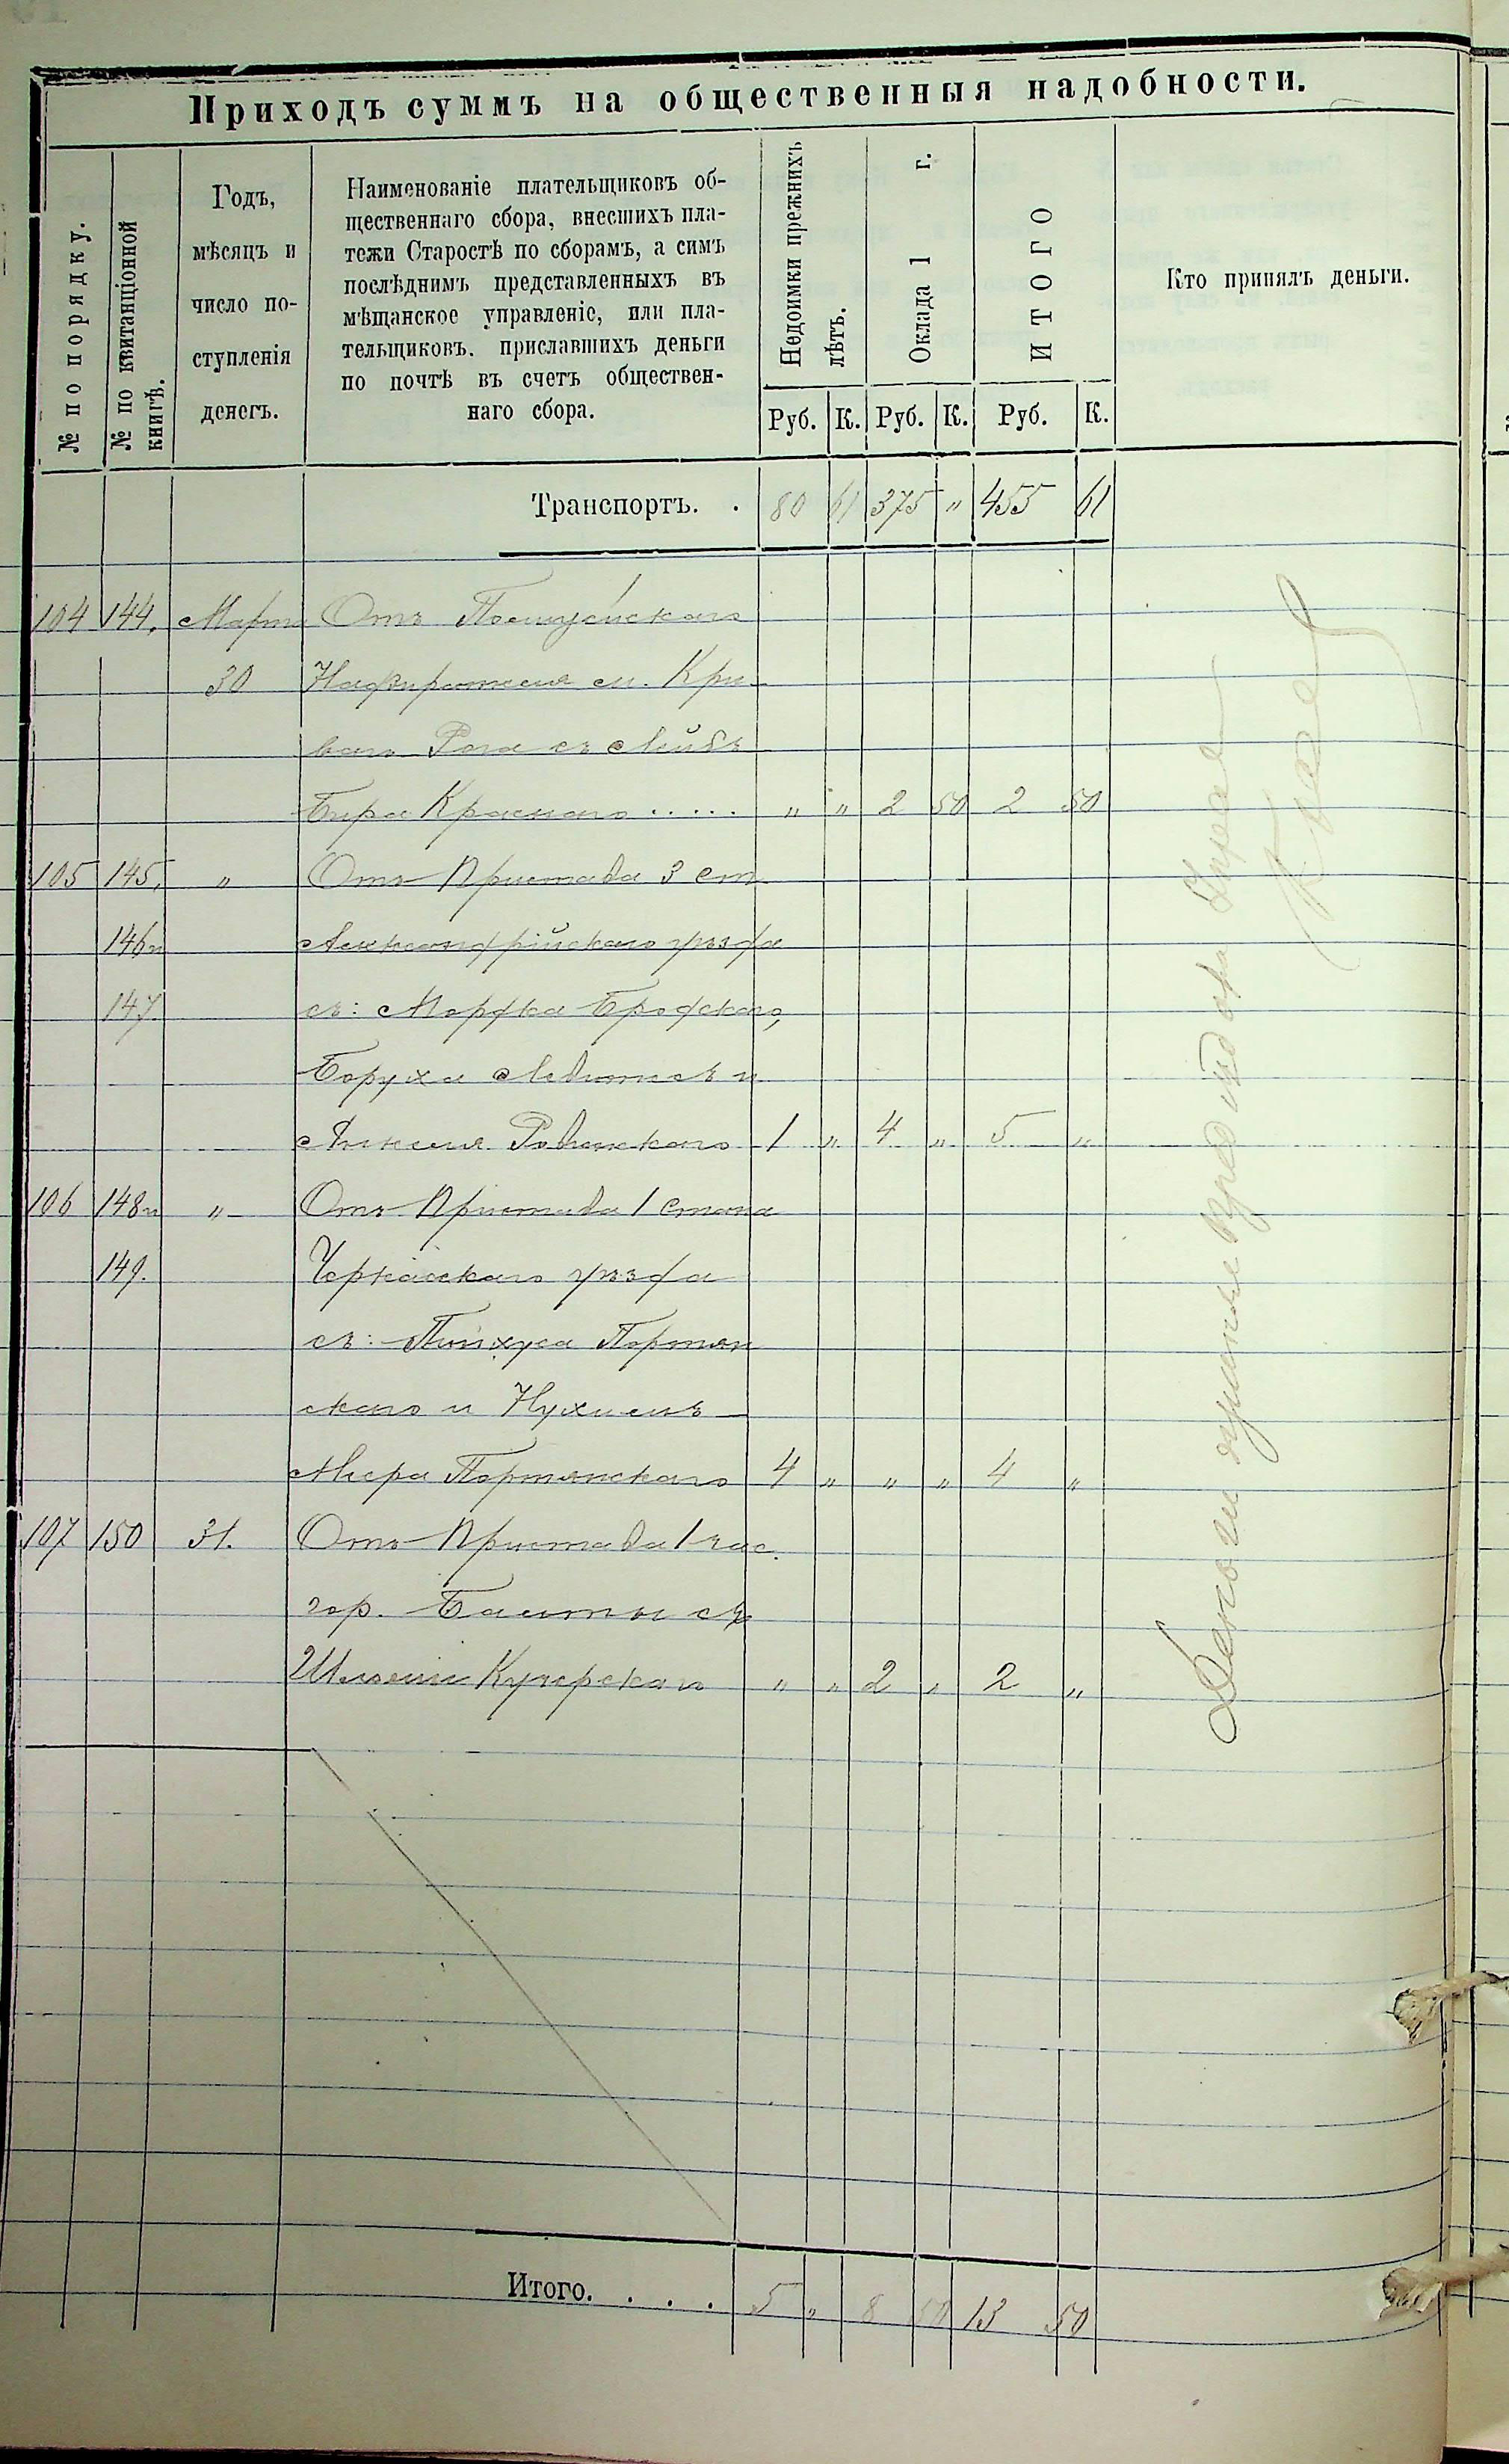 Приходъ суммъ на общественныя надобности.
№ по порядку.
№ по квитанціонной книгѣ.
Годъ,
мѣсяцъ и
число по-
ступленія
денегъ.
Наименованіе плательщиковъ об-
щественнаго сбора, внесшихъ пла-
тежи Старостѣ по сборамъ, а симъ
послѣднимъ представленныхъ въ
мѣщанское управленіе, или пла-
тельщиковъ. приславшихъ деньги
по почтѣ въ счетъ обществен-
наго сбора.
Недоимки прежнихъ лѣтъ.
Оклада 1 г.
ИТОГО
Кто принялъ деньги.
Руб. К. Руб. К. Руб. К.
Транспортъ. . 80 61 375 " 455 61
104 144. Марта Отъ
30 Надзирателя м. Кри-
ваго Рога съ Лейбъ
Бера Краснаго ..... " " 2 50 2 50
105 145, " Отъ Пристава 3 ст.
146 и Александрійскаго уѣзда
147 съ: Мордка Бродскаго,
Боруха и
Ровинскаго 1 " 4 " 5 "
106 148 и " Отъ Пристава 1 Стана
149. Черкасскаго уѣзда
съ: Пинхуса Портян
скаго и Нухимъ
Меера Портянскаго 4 " " " 4 "
107 150 31. Отъ Пристава 1 час.
гор. Балты съ
Кучерскаго " " 2 " 2 "
Деньги принялъ
Итого. . . . 5 " 8 50 13 50